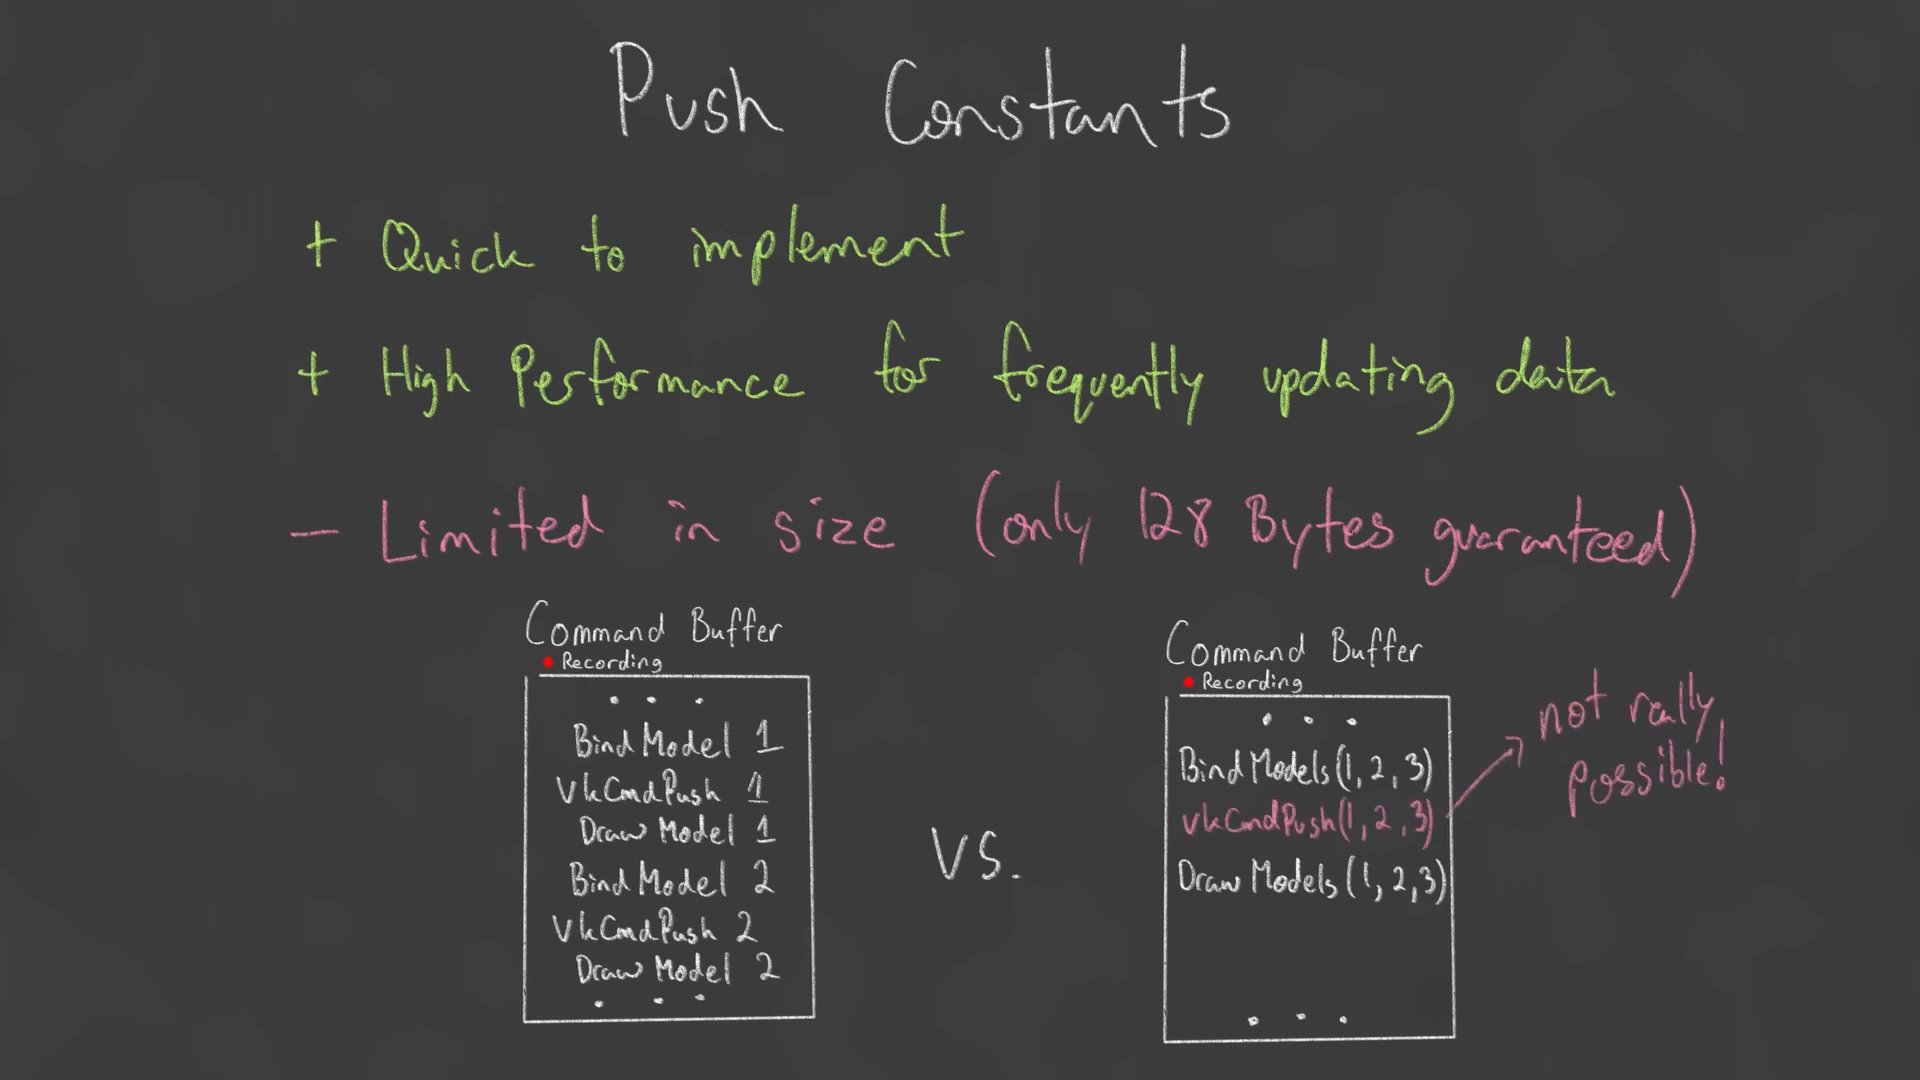 Push Constants
+ Quick to implement
+ High Performance for frequently updating data
- Limited in size (only 128 Bytes guaranteed)
Command Buffer
Recording
...
Bind Model 1
VkCmdPush 1
Draw Model 1
Bind Model 2
VkCmdPush 2
Draw Model 2
...
vs.
Command Buffer
Recording
...
Bind Models (1, 2, 3)
vkCmdPush (1, 2, 3)
Draw Models (1, 2, 3)
...
not really
possible!